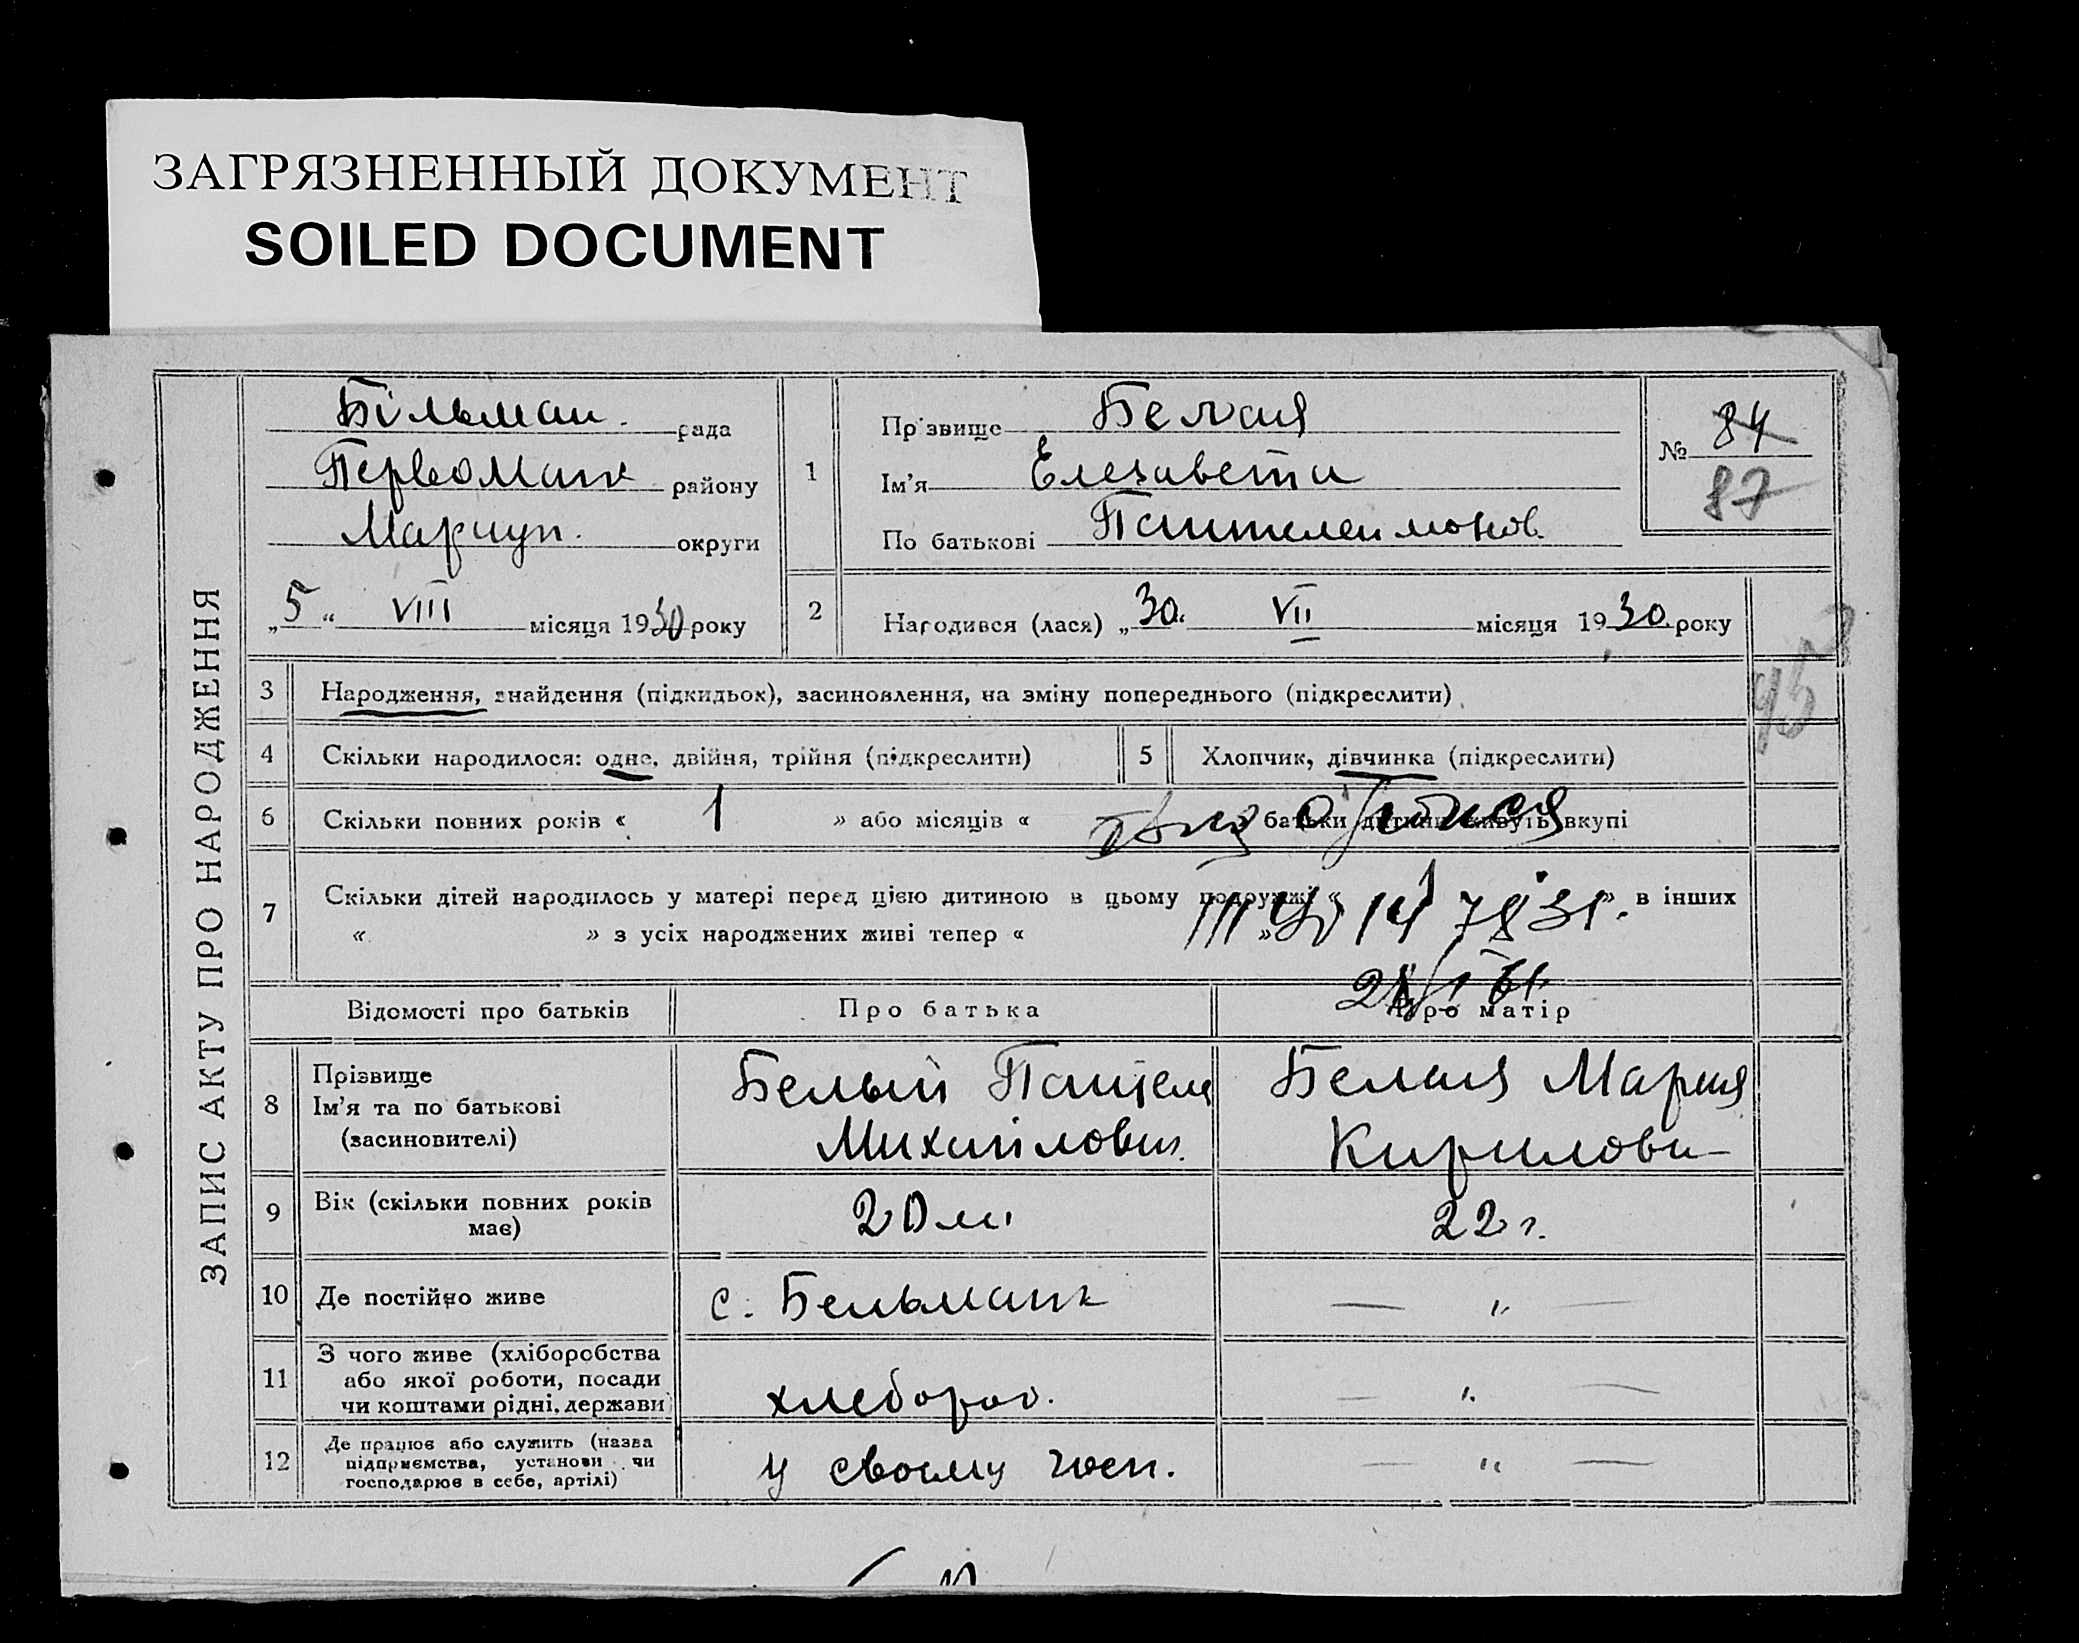 ЗАГРЯЗНЕННЫЙ ДОКУМЕНТ
SOILED DOCUMENT
ЗАПИС АКТУ ПРО НАРОДЖЕННЯ
Більман. рада
Первомаик району
Мариуп. округи
„5“ VIII місяця 1930 року
1
Прізвище Белая
Ім'я Елезавета
По батькові Пантелеимонов.
№ 84
87
2 Народився (лася) „30“ VII місяця 1930 року
3 Народження, знайдення (підкидьок), засиновлення, на зміну попереднього (підкреслити)
4 Скільки народилося: одне, двійня, трійня (підкреслити) 5 Хлопчик, дівчинка (підкреслити)
6 Скільки повних років « 1 » або місяців « батьки дитини живуть вкупі
7 Скільки дітей народилось у матері перед цією дитиною в цьому подружжі « » в інших
« » з усіх народжених живі тепер « »
Відомості про батьків Про батька Про матір
8 Прізвище
Ім'я та по батькові
(засиновителі)
Белый Пантеле
Михайлович.
Белая Мария
Кирилова
9 Вік (скільки повних років має) 20 л. 22 г.
10 Де постійно живе с. Бельманк — „ —
11 З чого живе (хліборобства
або якої роботи, посади
чи коштами рідні, держави)
хлебороб. — „ —
12 Де працює або служить (назва
підприємства, установи чи
господарює в себе, артілі)
у своему госп. — „ —